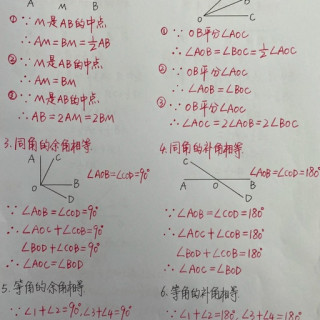 A M B
① ∵ M是AB的中点
∴ AM=BM=½AB
② ∵ M是AB的中点
∴ AM=BM
③ ∵ M是AB的中点
∴ AB=2AM=2BM
O C
① ∵ OB平分∠AOC
∴ ∠AOB=∠BOC=½∠AOC
② ∵ OB平分∠AOC
∴ ∠AOB=∠BOC
③ ∵ OB平分∠AOC
∴ ∠AOC=2∠AOB=2∠BOC
3.同角的余角相等
A C
∠AOB=∠COD=90°
O B
D
∵ ∠AOB=∠COD=90°
∴ ∠AOC+∠COB=90°
∠BOD+∠COB=90°
∴ ∠AOC=∠BOD
4.同角的补角相等
C
∠AOB=∠COD=180°
A O B
D
∵ ∠AOB=∠COD=180°
∴ ∠AOC+∠COB=180°
∠BOD+∠COB=180°
∴ ∠AOC=∠BOD
5.等角的余角相等
∵ ∠1+∠2=90°,∠3+∠4=90°
6.等角的补角相等
∵ ∠1+∠2=180°,∠3+∠4=180°